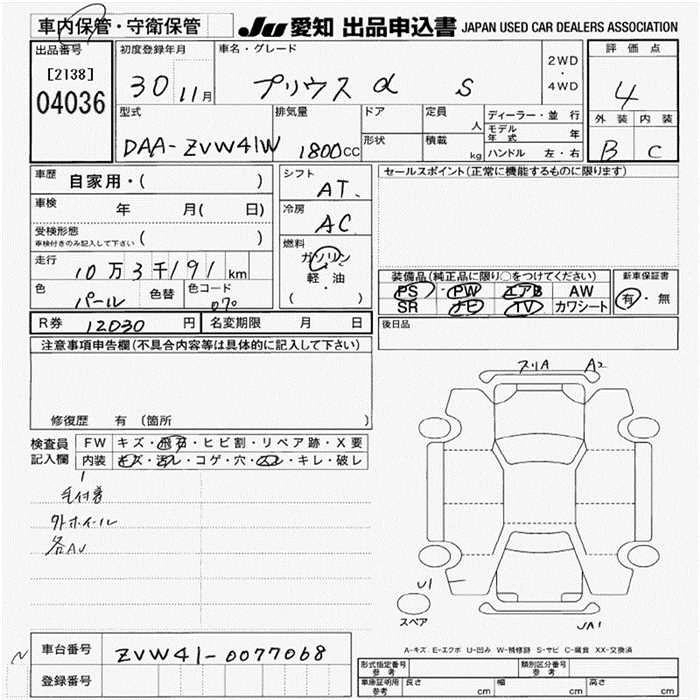 車内保管・守衛保管 JU 愛知 出品申込書 JAPAN USED CAR DEALERS ASSOCIATION
出品番号 初度登録年月 車名・グレード 2WD・4WD 評価点
[2138] 30 11月 プリウス α S 4
04036
型式 排気量 ドア 定員 人 ディーラー・並行 外装 内装
DAA-ZVW41W 1800cc 形状 積載 kg モデル年式 年 B C
ハンドル 左・右
車歴 自家用・( ) シフト AT. セールスポイント(正常に機能するものに限ります)
車検 年 月( 日) 冷房 AC
受検形態 ( )
車検付きのみ記入して下さい
燃料 ガソリン
走行 10万3千191km 軽・油
( )
装備品(純正品に限り○をつけてください) 新車保証書
色 パール 色替 色コード 070 PS・PW エアB AW 有・無
SR ナビ TV カワシート
R券 12030円 名変期限 月 日 後日品
注意事項申告欄(不具合内容等は具体的に記入して下さい)
スリA A2
修復歴 有 (箇所 )
検査員記入欄 FW キズ・飛石・ヒビ割・リペア跡・X要
内装 キズ・汚レ・コゲ・穴・スレ・キレ・破レ
外ホイール
各AU
U1
スペア
UA1
A-キズ E-エクボ U-凹み W-補修跡 S-サビ C-腐食 XX-交換済
車台番号 ZVW41-0077068
登録番号
形式指定番号 参考 類別区分番号 参考
車庫証明用 参考 長さ cm 幅 cm 高さ cm